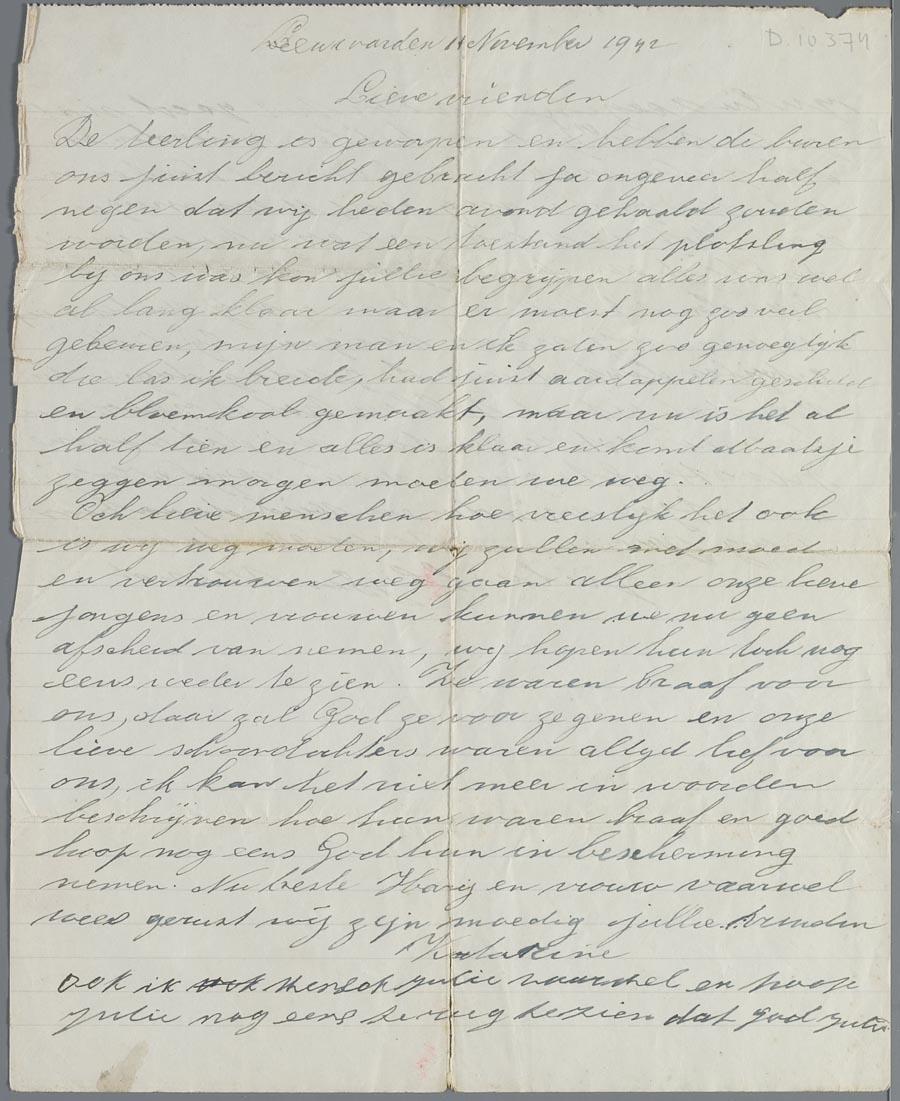 Leeuwarden 11 November 1942
D.10374
Lieve vrienden
De teerling is geworpen en hebben de buren
ons juist bericht gebracht ja ongeveer half
negen dat wij heden avond gehaald zouden
worden, nu wat een toestand het plotsling
bij ons was kon jullie begrijpen alles was wel
al lang klaar maar er moest nog zoo veel
gebeuren, mijn man en ik zaten zoo genoegelijk
die las ik breide, had juist aardappelen geschild
en bloemkool gemaakt, maar nu is het al
half tien en alles is klaar en komt
zeggen morgen moeten we weg.
Och lieve menschen hoe vreeslijk het ook
is wij weg moeten, wij zullen met moed
en vertrouwen weg gaan alleen onze lieve
jongens en vrouwen kunnen we nu geen
afscheid van nemen, wij hopen hun toch nog
eens weder te zien. Ze waren braaf voor
ons, daar zal God ze voor zegenen en onze
lieve schoondochters waren altyd lief voor
ons, ik kan het niet meer in woorden
beschrijven hoe hun waren braaf en goed
hoop nog eens God hun in bescherming
nemen. Nu beste Harij en vrouw vaarwel
wees gerust wij zijn moedig jullie vrinden
Katarine
ook ik wensch julie vaarwel en hoop
julie nog eens terug te zien dat god julie